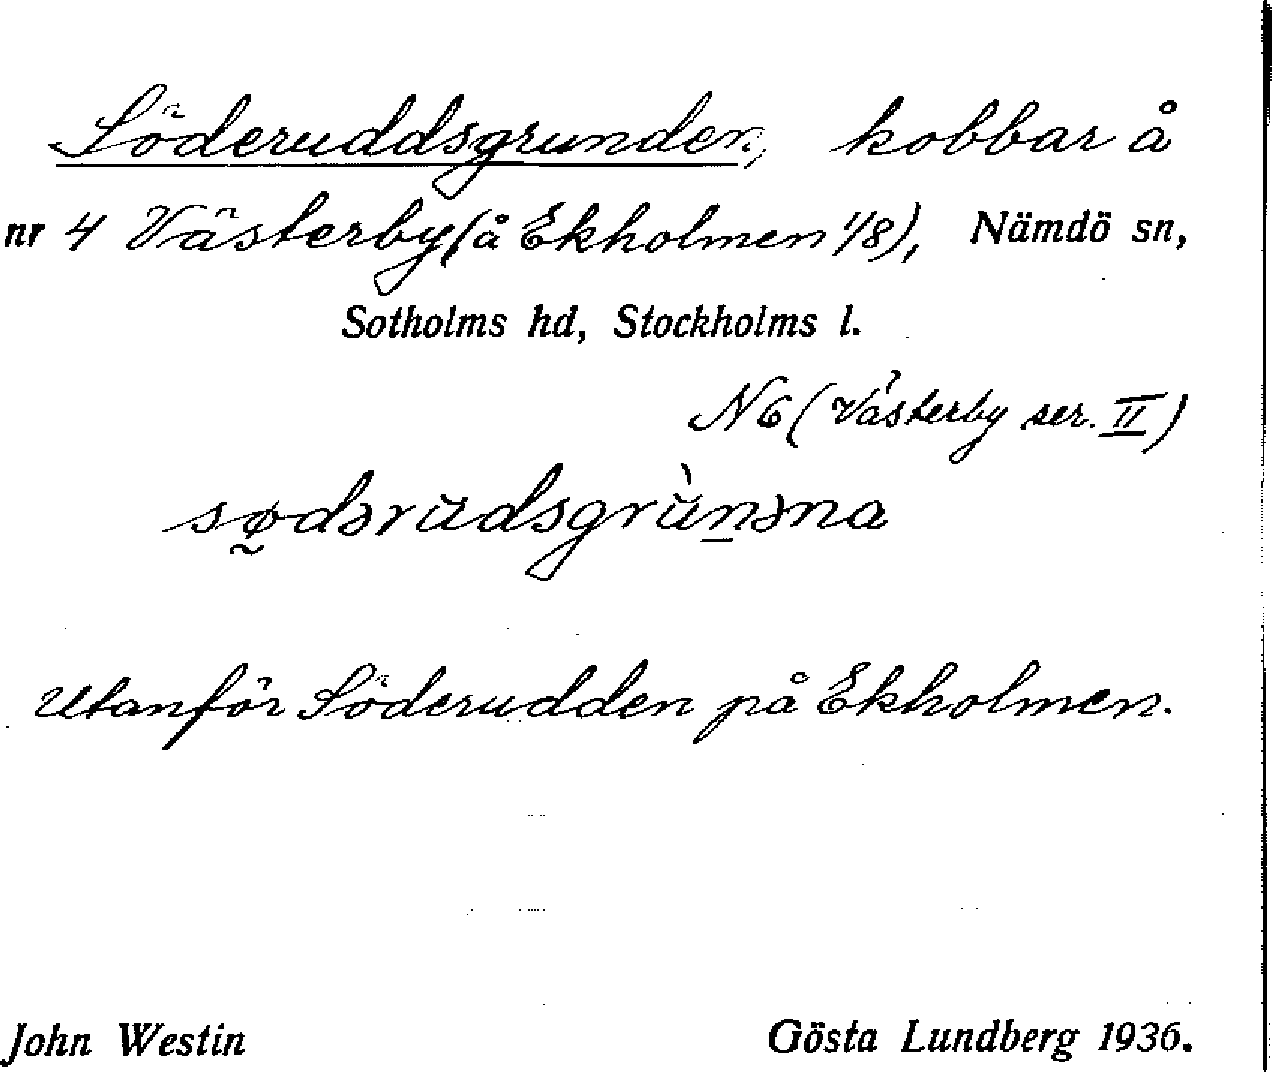 Söderuddsgrunden, kobbar å
nr 4 Västerby (å Ekholmen 1/8), Nämdö sn,
Sotholms hd, Stockholms l.
N 6 (Västerby ser. II)
sø̰dərŭdsgrŭ̀n̲əna
Utanför Söderudden på Ekholmen.
John Westin Gösta Lundberg 1936.